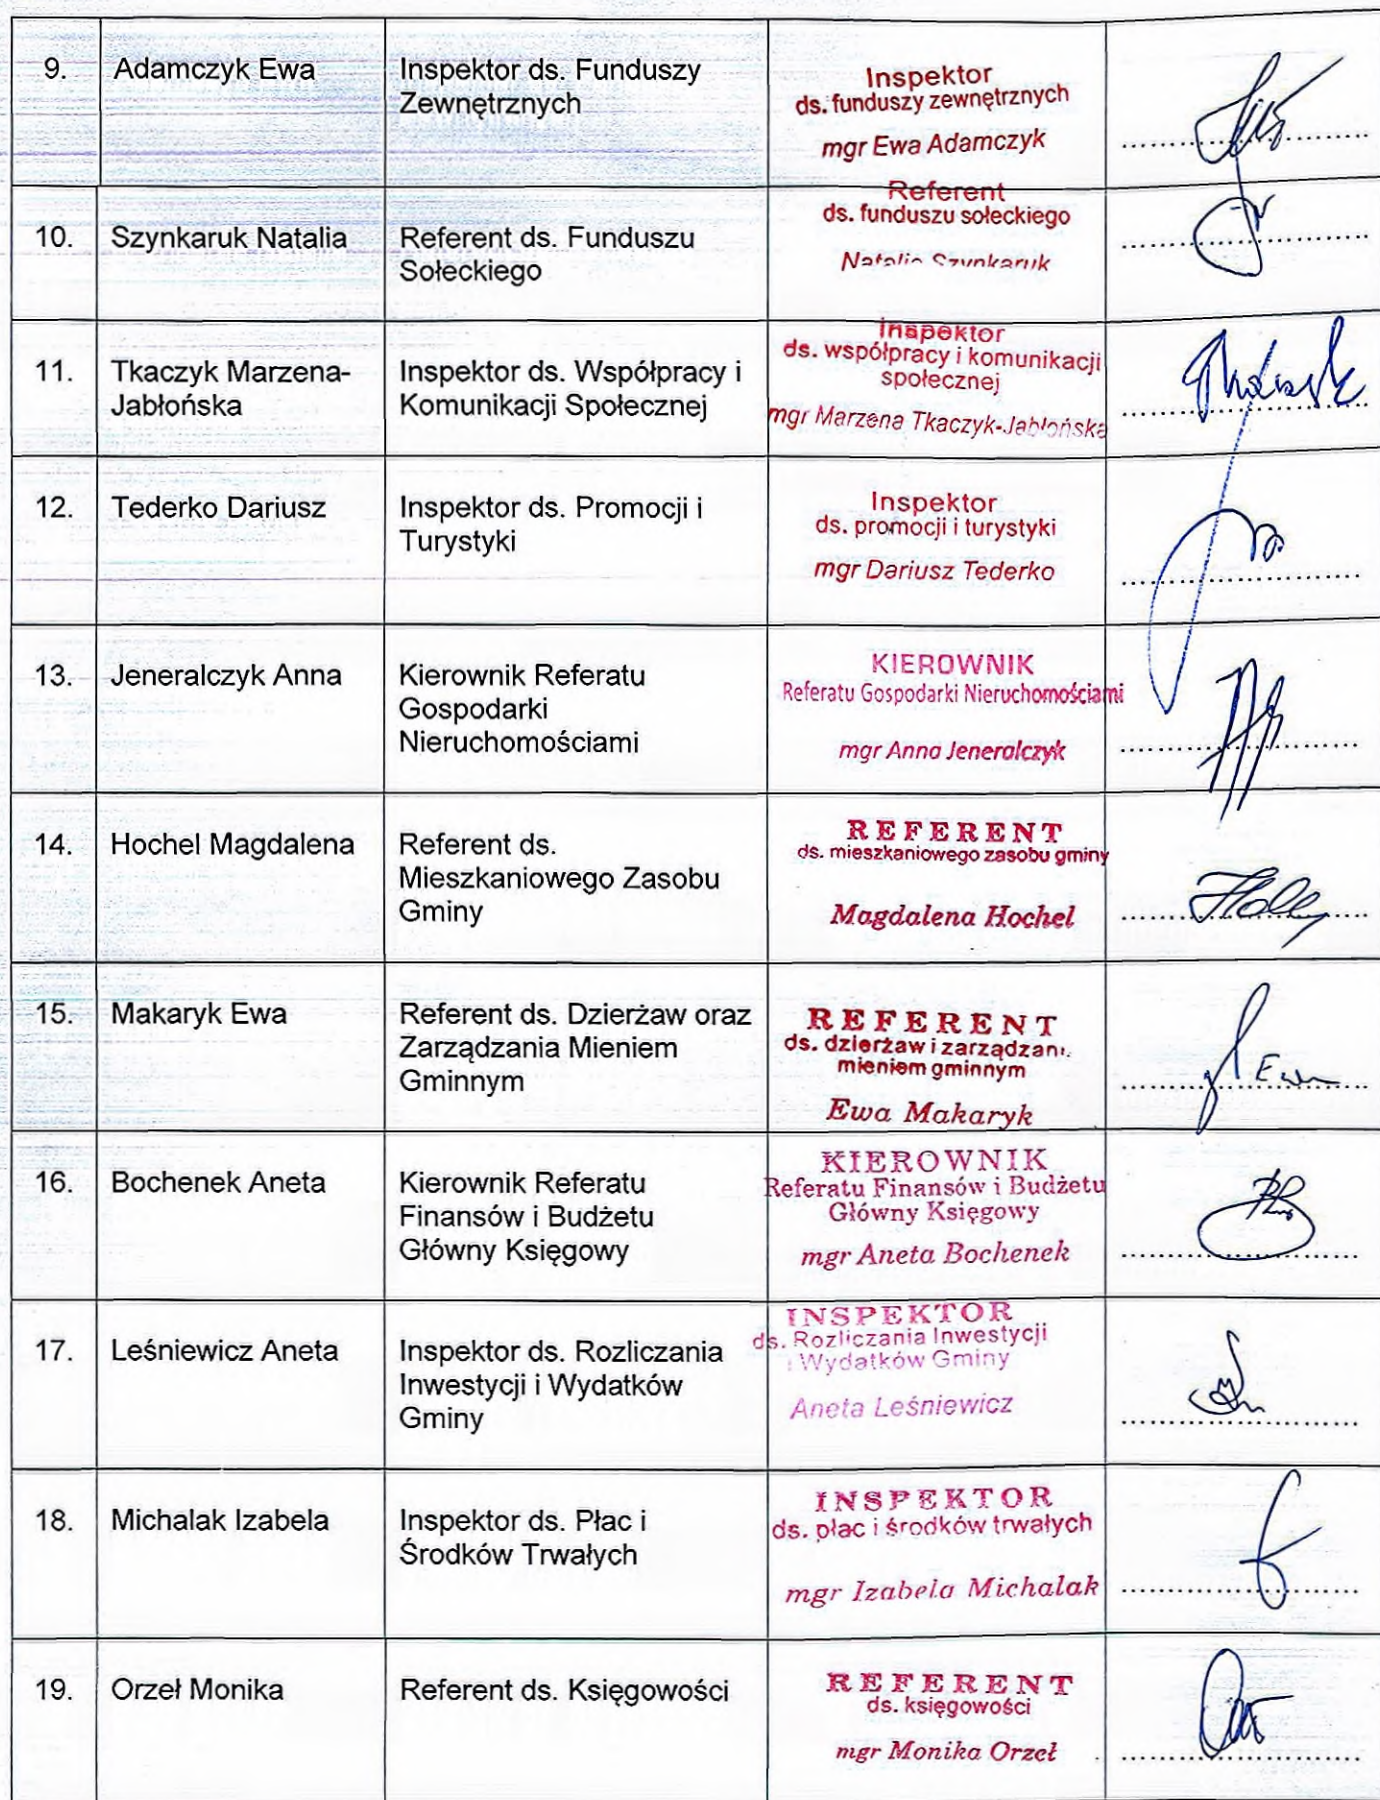 9.
Adamczyk Ewa
Inspektor ds. Funduszy
Zewnętrznych
Inspektor
ds. funduszy zewnętrznych
mgr Ewa Adamczyk
10.
Szynkaruk Natalia
Referent ds. Funduszu
Sołeckiego
Referent
ds. funduszu sołeckiego
Natalia Szynkaruk
11.
Tkaczyk Marzena-
Jabłońska
Inspektor ds. Współpracy i
Komunikacji Społecznej
Inspektor
ds. współpracy i komunikacji
społecznej
mgr Marzena Tkaczyk-Jabłońska
12.
Tederko Dariusz
Inspektor ds. Promocji i
Turystyki
Inspektor
ds. promocji i turystyki
mgr Dariusz Tederko
13.
Jeneralczyk Anna
Kierownik Referatu
Gospodarki
Nieruchomościami
KIEROWNIK
Referatu Gospodarki Nieruchomościami
mgr Anna Jeneralczyk
14.
Hochel Magdalena
Referent ds.
Mieszkaniowego Zasobu
Gminy
REFERENT
ds. mieszkaniowego zasobu gminy
Magdalena Hochel
15.
Makaryk Ewa
Referent ds. Dzierżaw oraz
Zarządzania Mieniem
Gminnym
REFERENT
ds. dzierżaw i zarządzani
mieniem gminnym
Ewa Makaryk
16.
Bochenek Aneta
Kierownik Referatu
Finansów i Budżetu
Główny Księgowy
KIEROWNIK
Referatu Finansów i Budżetu
Główny Księgowy
mgr Aneta Bochenek
17.
Leśniewicz Aneta
Inspektor ds. Rozliczania
Inwestycji i Wydatków
Gminy
INSPEKTOR
ds. Rozliczania Inwestycji
i Wydatków Gminy
Aneta Leśniewicz
18.
Michalak Izabela
Inspektor ds. Płac i
Środków Trwałych
INSPEKTOR
ds. płac i środków trwałych
mgr Izabela Michalak
19.
Orzeł Monika
Referent ds. Księgowości
REFERENT
ds. księgowości
mgr Monika Orzeł